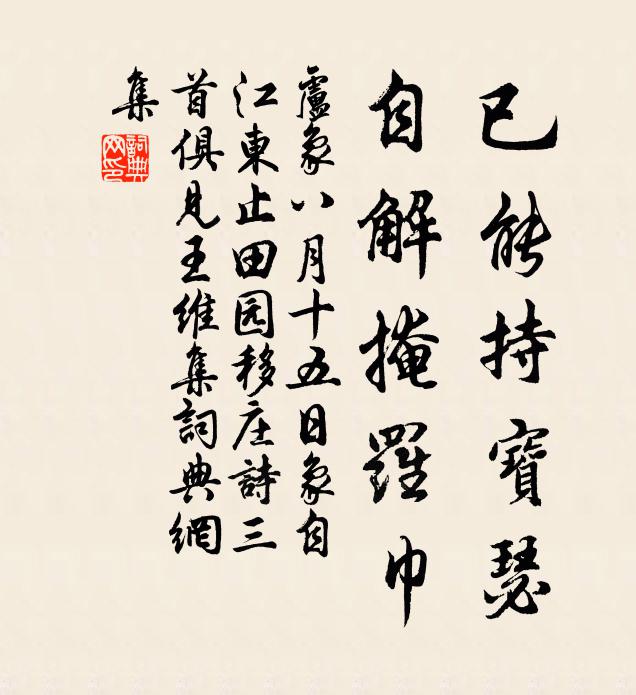 已能持寶瑟
自解掩羅巾
盧象八月十五日象自
江東止田园移庄詩三
首俱見王维集詞典網
集
詞典網印